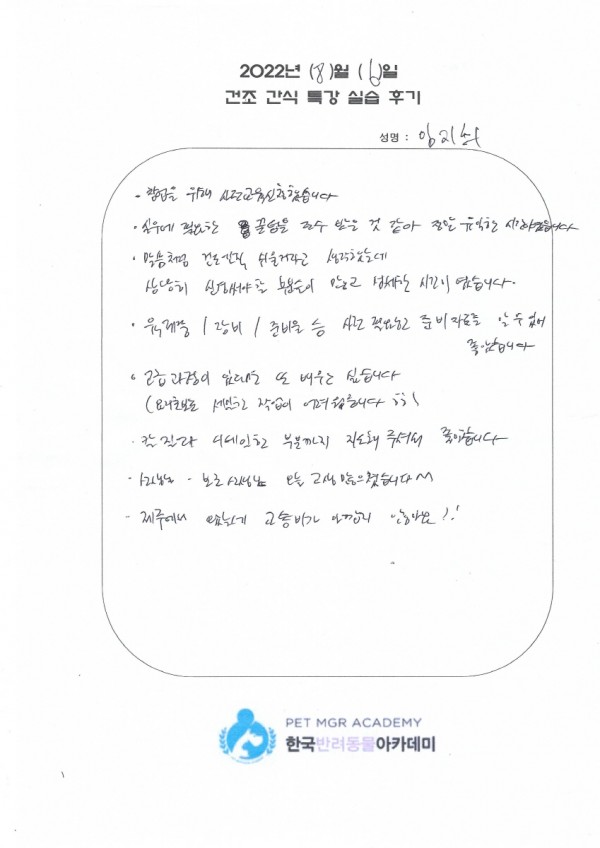 2022년 (8)월 (6)일
건조 간식 특강 실습 후기
성명 : 임지혁
- 창업을 위해 신청했습니다
- 실무에 필요한 꿀팁을 전수 받은 것 같아 정말 유익한 시간이였습니다
- 말씀처럼 건조간식 쉬울거라고 생각했는데
상당히 신경써야할 부분들이 많고 섬세한 시간이 였습니다.
- / 장비 / 준비물 등 필요한 준비자료를 알 수 있어
좋았습니다
- 고급 과정이 있다면 또 배우고 싶습니다
( 작업이 어려웠습니다 ㅠㅠ)
- 칼질과 디테일한 부분까지 지도해 주셔서 좋았습니다
- 강사님 - 보조강사님 오늘 고생많으셨습니다 ^^
- 제주에서 교통비가 아깝지 않아요!!
PET MGR ACADEMY
한국반려동물아카데미